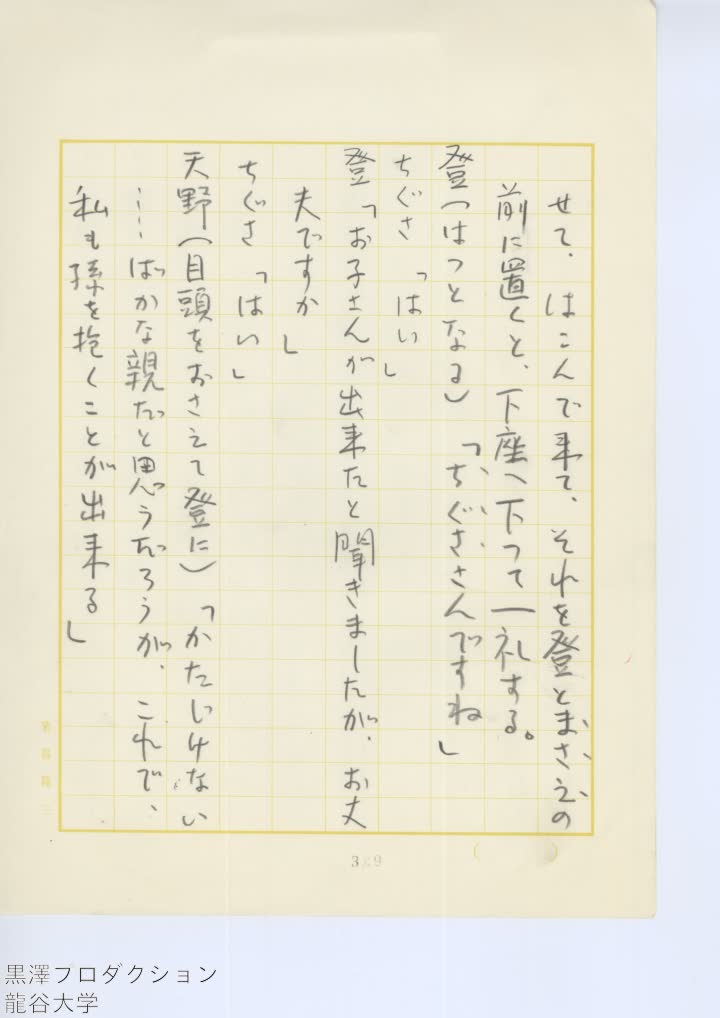 せて、はこんで来て、それを登とまさえの
前に置くと、下座へ下つて一礼する。
登(はつとなる)「ちぐささんですね」
ちぐさ「はい」
登「お子さんが出来たと聞きましたが、お丈
夫ですか」
ちぐさ「はい」
天野(目頭をおさえて登に)「かたじけない
……ばかな親だと思うだろうが、これで、
私も孫を抱くことが出来る」
黒澤プロダクション
龍谷大学